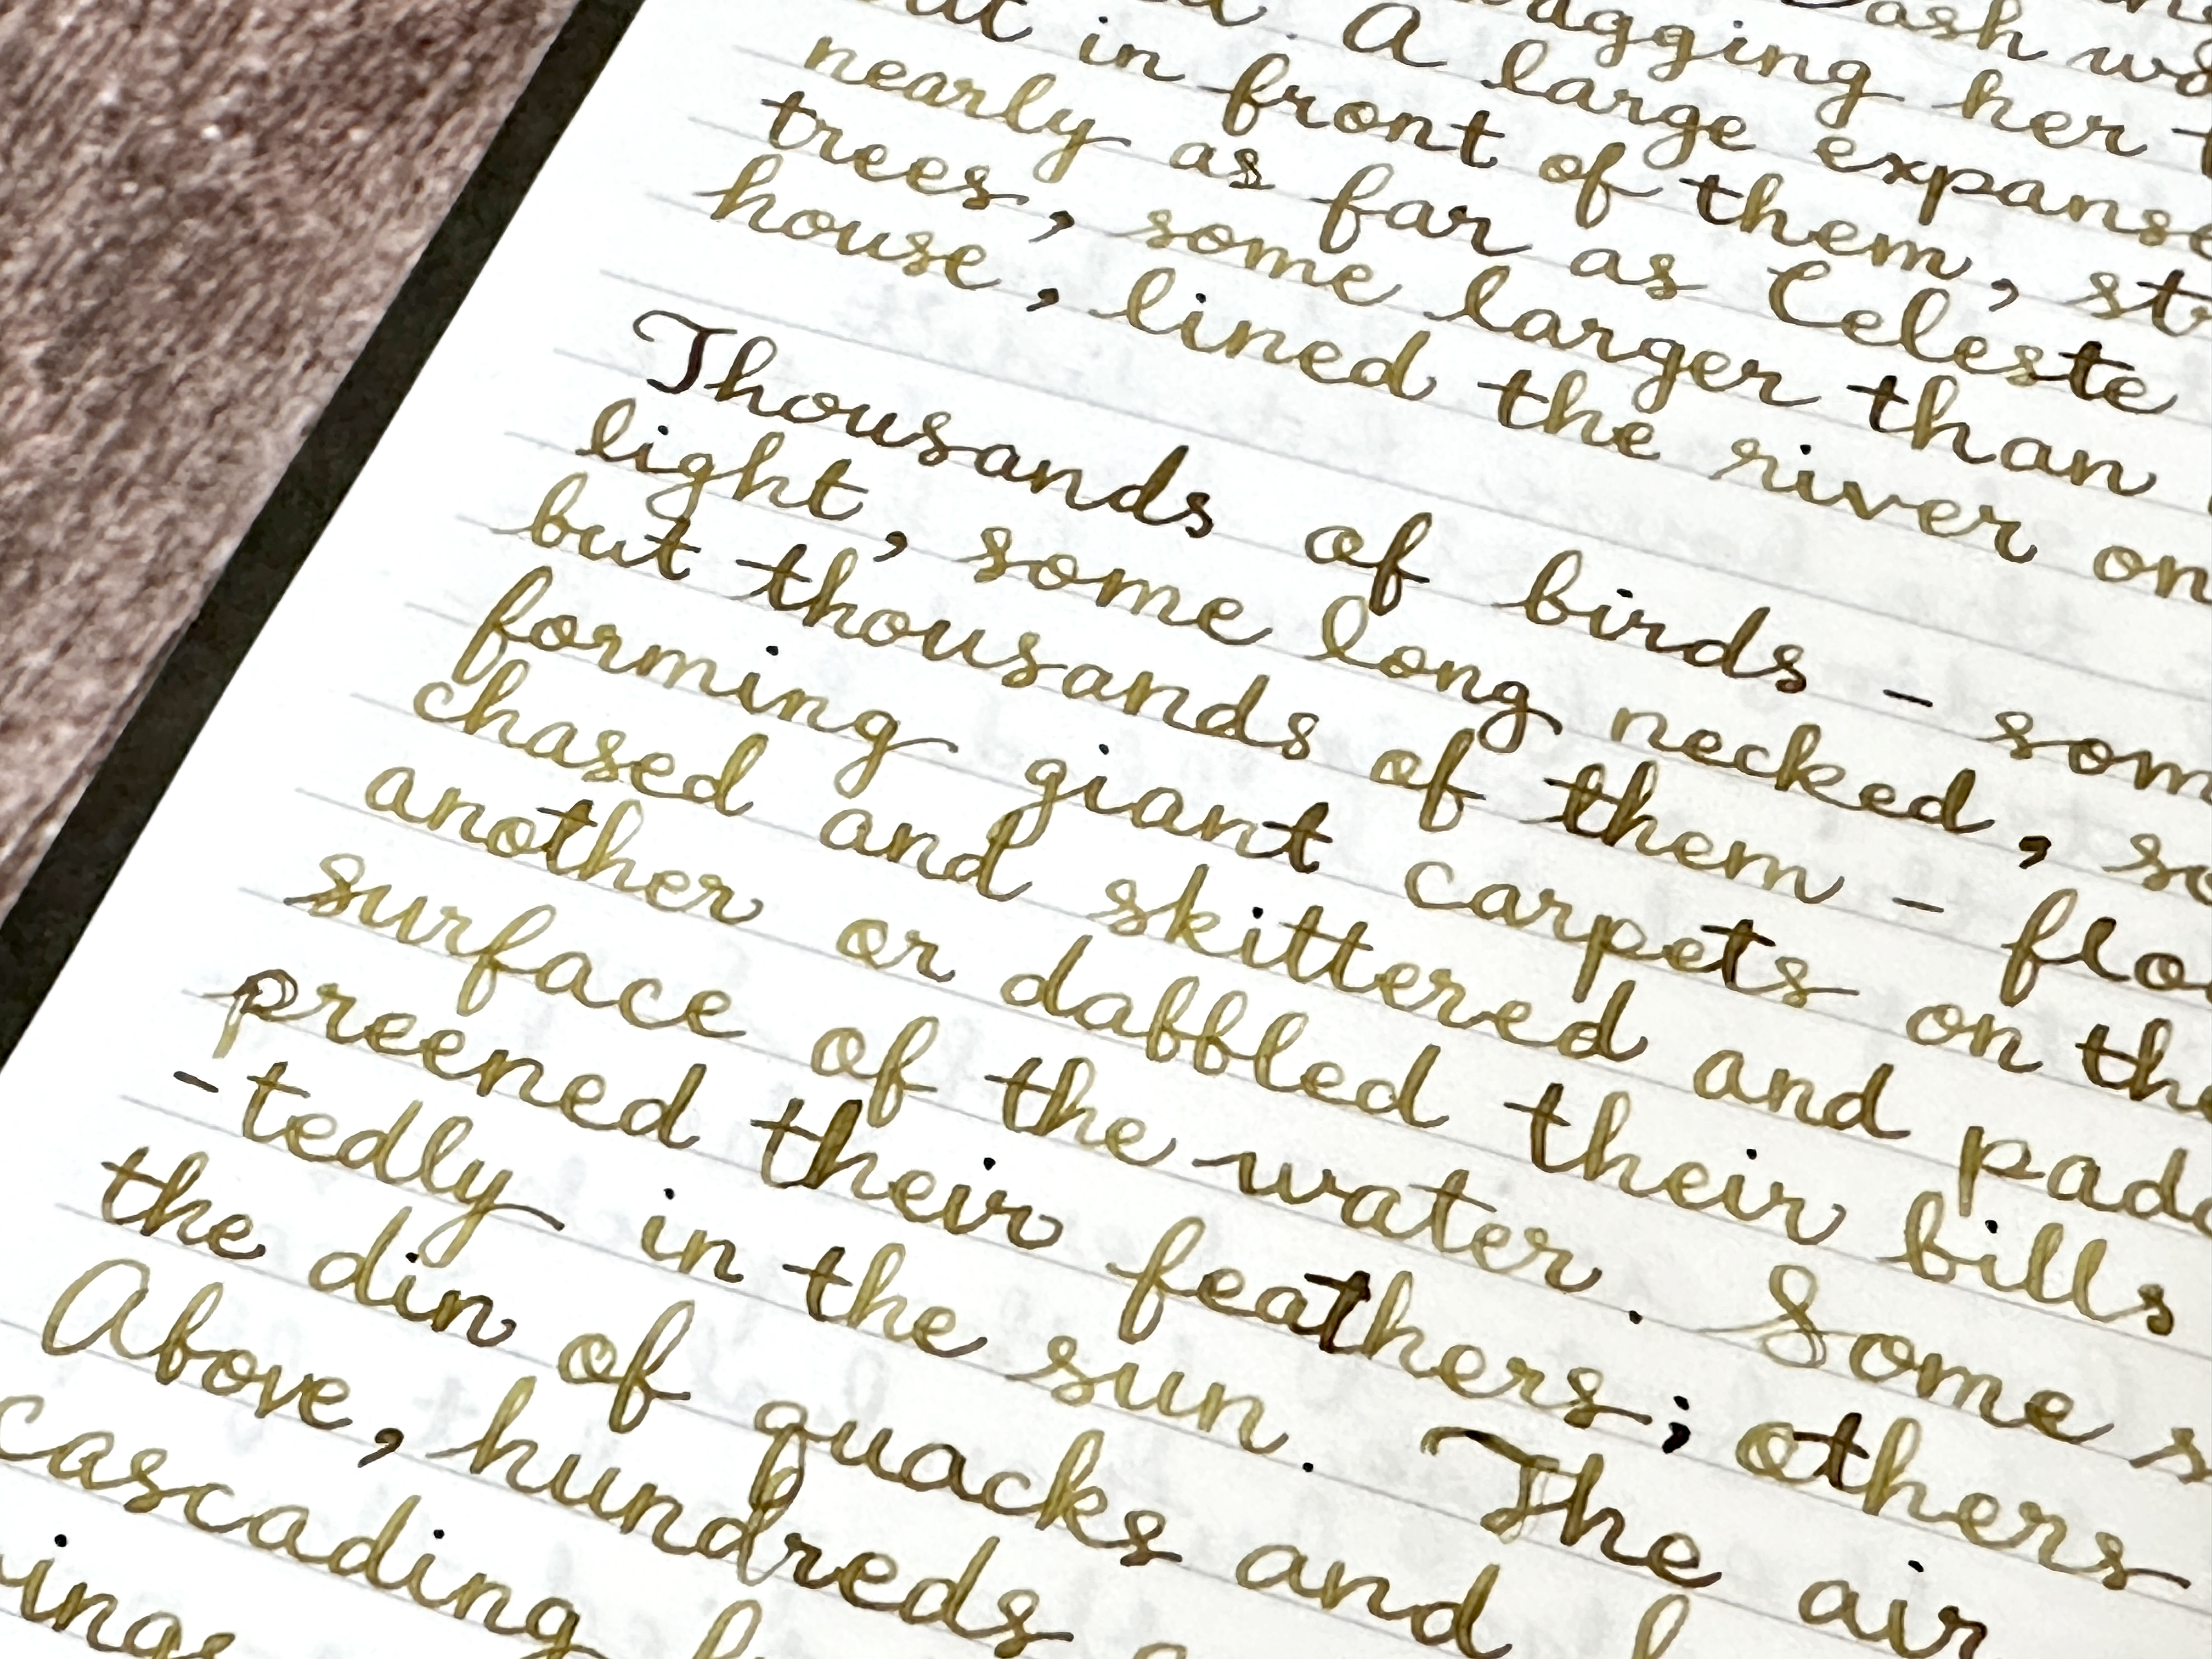 ash wa
agging her t
. A large expanse
at in front of them, st
nearly as far as Celeste
trees, some larger than
house, lined the river on
Thousands of birds – som
light, some long necked, so
but thousands of them – flo
forming giant carpets on the
chased and skittered and padd
another or dabbled their bills
surface of the water. Some s
preened their feathers; others
-tedly in the sun. The air
the din of quacks and
Above, hundreds
cascading
ings